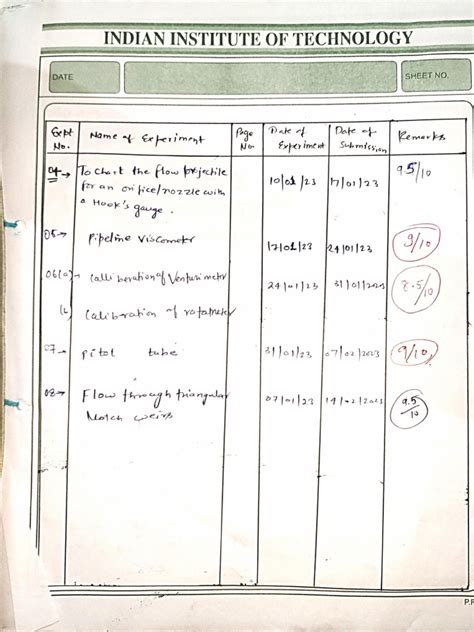 INDIAN INSTITUTE OF TECHNOLOGY
DATE
SHEET NO.
Expt No.
Name of Experiment
Page No
Date of Experiment
Date of Submission
Remarks
04→ To chart the flow projectile 10/01/23 17/01/23 9.5/10
for an orifice/nozzle with
a Hook's gauge.
05→ Pipeline Viscometer 17/01/23 24/01/23 9/10
06(a)→ Calliberation of Venturimeter 24/01/23 31/01/2023 8.5/10
(b) Calibration of rotameter
07→ Pitot tube 31/01/23 07/02/2023 9/10
08→ Flow through triangular 07/01/23 14/02/2023 9.5/10
Notch weirs